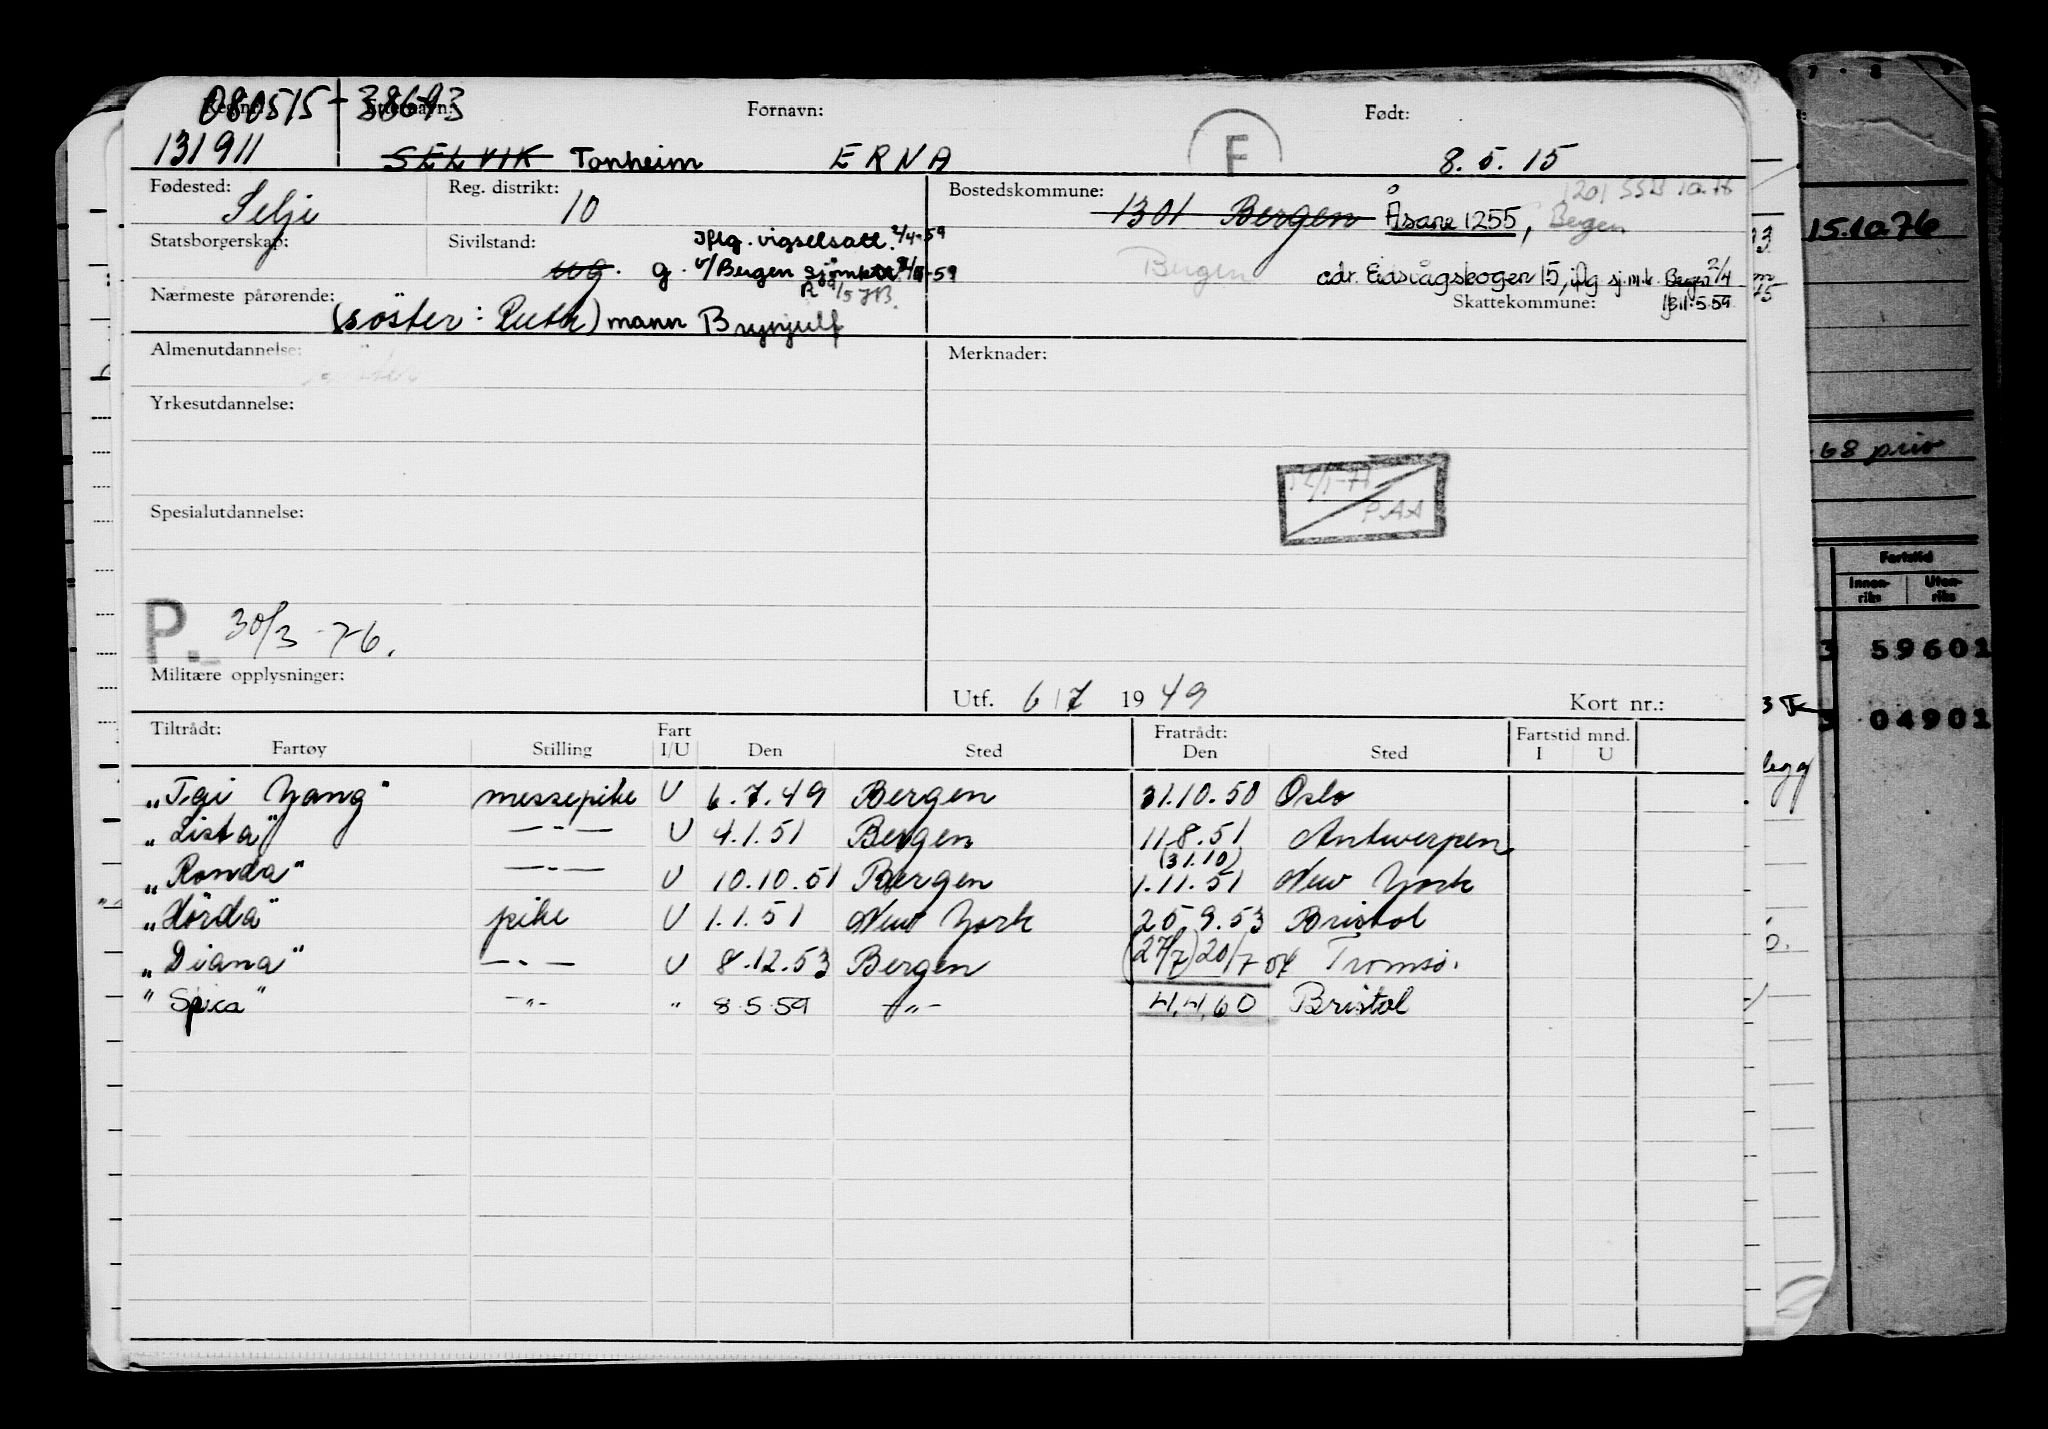 080515-38693
Etternavn: Fornavn: Født:
131911 SELVIK Tonheim ERNA F 8.5.15
Fødested: Selje Reg. distrikt: 10 Bostedskommune: 1301 Bergen Åsane 1255, Bergen
Statsborgerskap: Sivilstand: ug. g. Iflg. vigselsatt. 2/4-59
v/Bergen
Bergen adr. Eidsvågskogen 15, iflg sj.m.k. Bergen 2/4
Skattekommune: 11.5.59
Nærmeste pårørende: (söster: Ruth) mann Brynjulf
Almenutdannelse: Merknader:
Yrkesutdannelse:
P.A.A
Spesialutdannelse:
P. 30/3-76.
Militære opplysninger:
Utf. 6/7 1949 Kort nr.:
Tiltrådt: Fart Fratrådt: Fartstid mnd.
Fartøy Stilling I/U Den Sted Den Sted I U
"Tai Yang" messepike U 6.7.49 Bergen 31.10.50 Oslo
"Lista" —"— U 4.1.51 Bergen 11.8.51 Antwerpen
"Ronda" —"— U 10.10.51 Bergen (31.10) 1.11.51 New York
"Hörda" pike U 1.1.51 New York 25.9.53 Bristol
"Diana" —"— U 8.12.53 Bergen (27/7) 20/7 54 Tromsö.
"Spica" —"— " 8.5.59 —"— 4.4.60 Bristol
15.10.76
68 priv
Fartstid
Innen-riks Uten-riks
3 59601
3 04901
legg